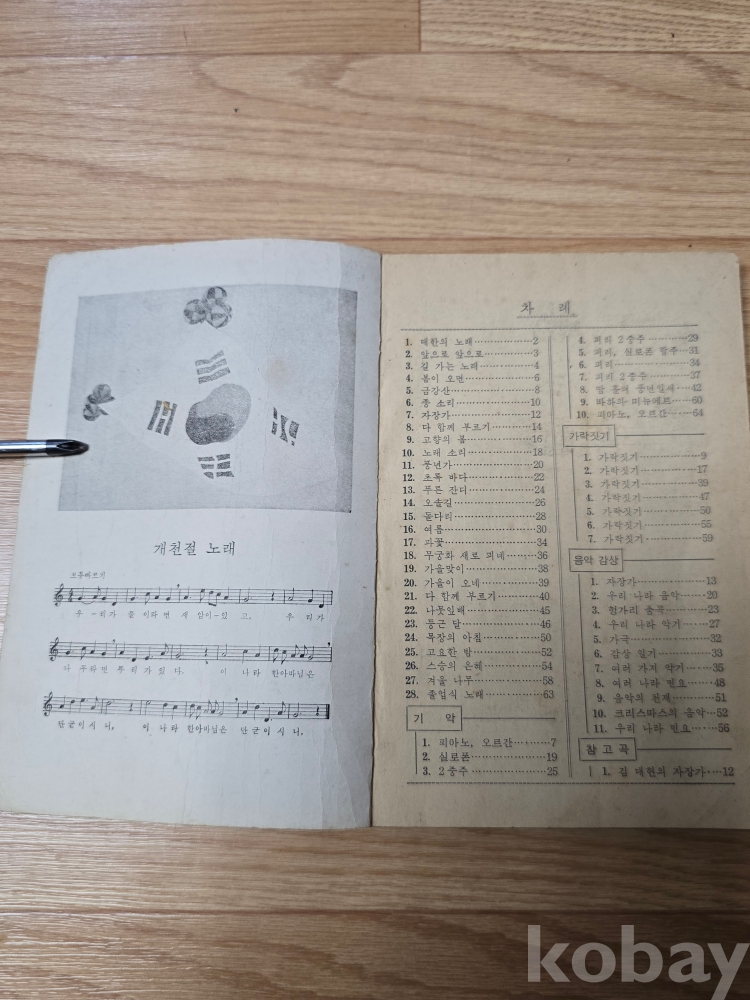 개천절 노래
보통빠르기
우-리가 물 이라면 새 암이-있 고, 우 리가
다 무라면 뿌리가 있 다. 이 나라 한아바님은
단군이시 니, 이 나라 한아바님은 단 군이 시 니,
차 례
1. 대한의 노래 2
2. 앞으로 앞으로 3
3. 길 가는 노래 4
4. 봄이 오면 6
5. 금강산 8
6. 종 소리 10
7. 자장가 12
8. 다 함께 부르기 14
9. 고향의 봄 16
10. 노래 소리 18
11. 풍년가 20
12. 초록 바다 22
13. 푸른 잔디 24
14. 오솔길 26
15. 돌다리 28
16. 여름 30
17. 과꽃 34
18. 무궁화 새로 피네 36
19. 가을맞이 38
20. 가을이 오네 39
21. 다 함께 부르기 40
22. 나뭇잎배 45
23. 둥근 달 46
24. 목장의 아침 50
25. 고요한 밤 52
26. 스승의 은혜 54
27. 겨울 나무 58
28. 졸업식 노래 63
기 악
1. 피아노, 오르간 7
2. 실로폰 19
3. 2중주 25
4. 피리 2중주 29
5. 피리, 실로폰 합주 31
6. 피리 34
7. 피리 2중주 37
8. 풍년일세 42
9. 바하의 미뉴에트 60
10. 피아노, 오르간 64
가락짓기
1. 가락짓기 9
2. 가락짓기 17
3. 가락짓기 39
4. 가락짓기 47
5. 가락짓기 50
6. 가락짓기 55
7. 가락짓기 59
음악 감상
1. 자장가 13
2. 우리 나라 음악 20
3. 헝가리 춤곡 23
4. 우리 나라 악기 27
5. 가극 32
6. 감상 일기 33
7. 여러 가지 악기 35
8. 여러 나라 민요 48
9. 음악의 천재 51
10. 크리스마스의 음악 52
11. 우리 나라 민요 56
참 고 곡
1. 김 대현의 자장가 12
kobay